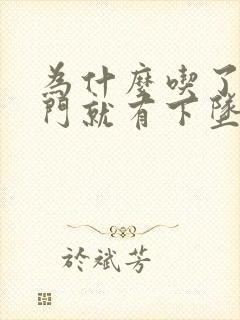 為什麼喫了
門就有下墜
於斌芳